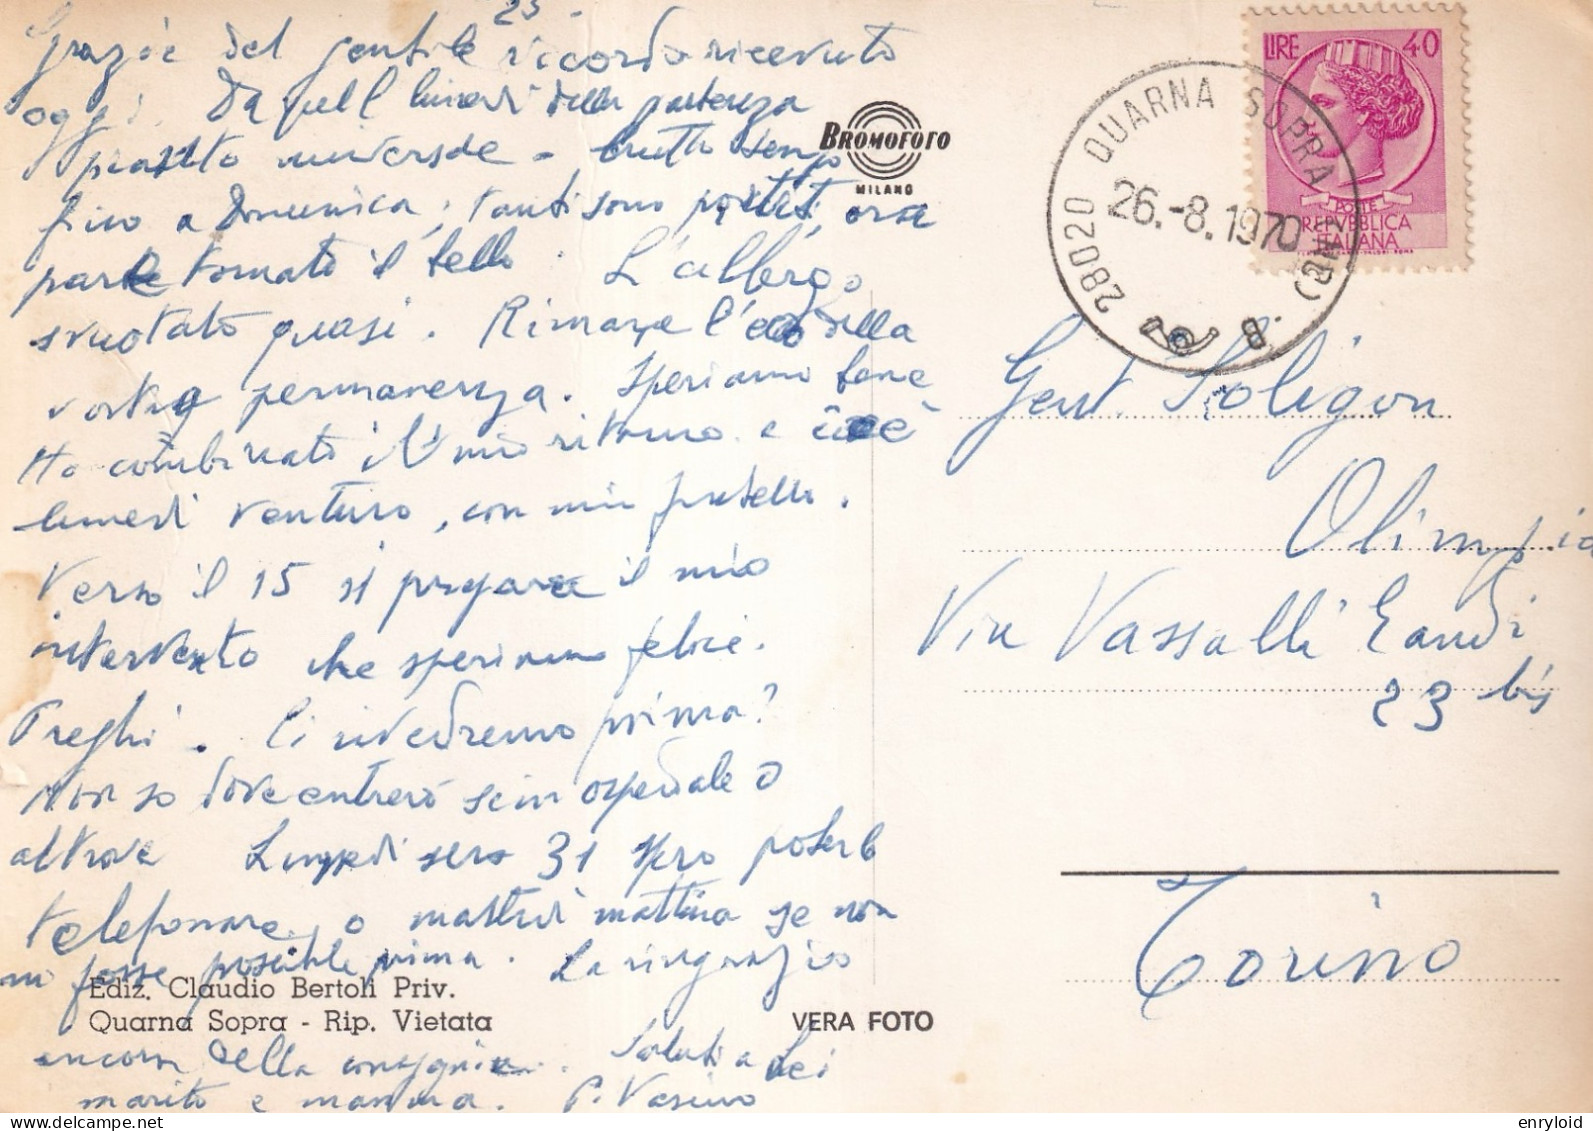 23
Grazie del gentile ricordo ricevuto
oggi. Da quel lunedi della partenza
universale - brutto tempo
fino a Domenica; tanti sono partiti, ora
pare tornato il bello. L'albergo
svuotato quasi. Rimane l'eco della
vostra permanenza. Speriamo bene
Ho combinato il mio ritorno e cioè
lunedi venturo, con mio fratello.
Verso il 15 si prepara il mio
intervento che speriamo felice.
Preghi. Ci rivedremo prima?
Non so dove entrerò se in ospedale o
altrove Lunedi sera 31 spero poterle
telefonare, o martedi mattina se non
mi fosse possibile prima. La ringrazio
ancora della compagnia. Saluti a Lei
marito e mamma. P. Vasino
Ediz. Claudio Bertoli Priv.
Quarna Sopra - Rip. Vietata
VERA FOTO
BROMOFOTO
MILANO
28020 QUARNA SOPRA (NO)
26.-8.1970
B
LIRE 40
POSTE
REPVBBLICA
ITALIANA
Gent. Soligon
Olimpia
Via Vassalli Eandi
23 bis
Torino
enryloid